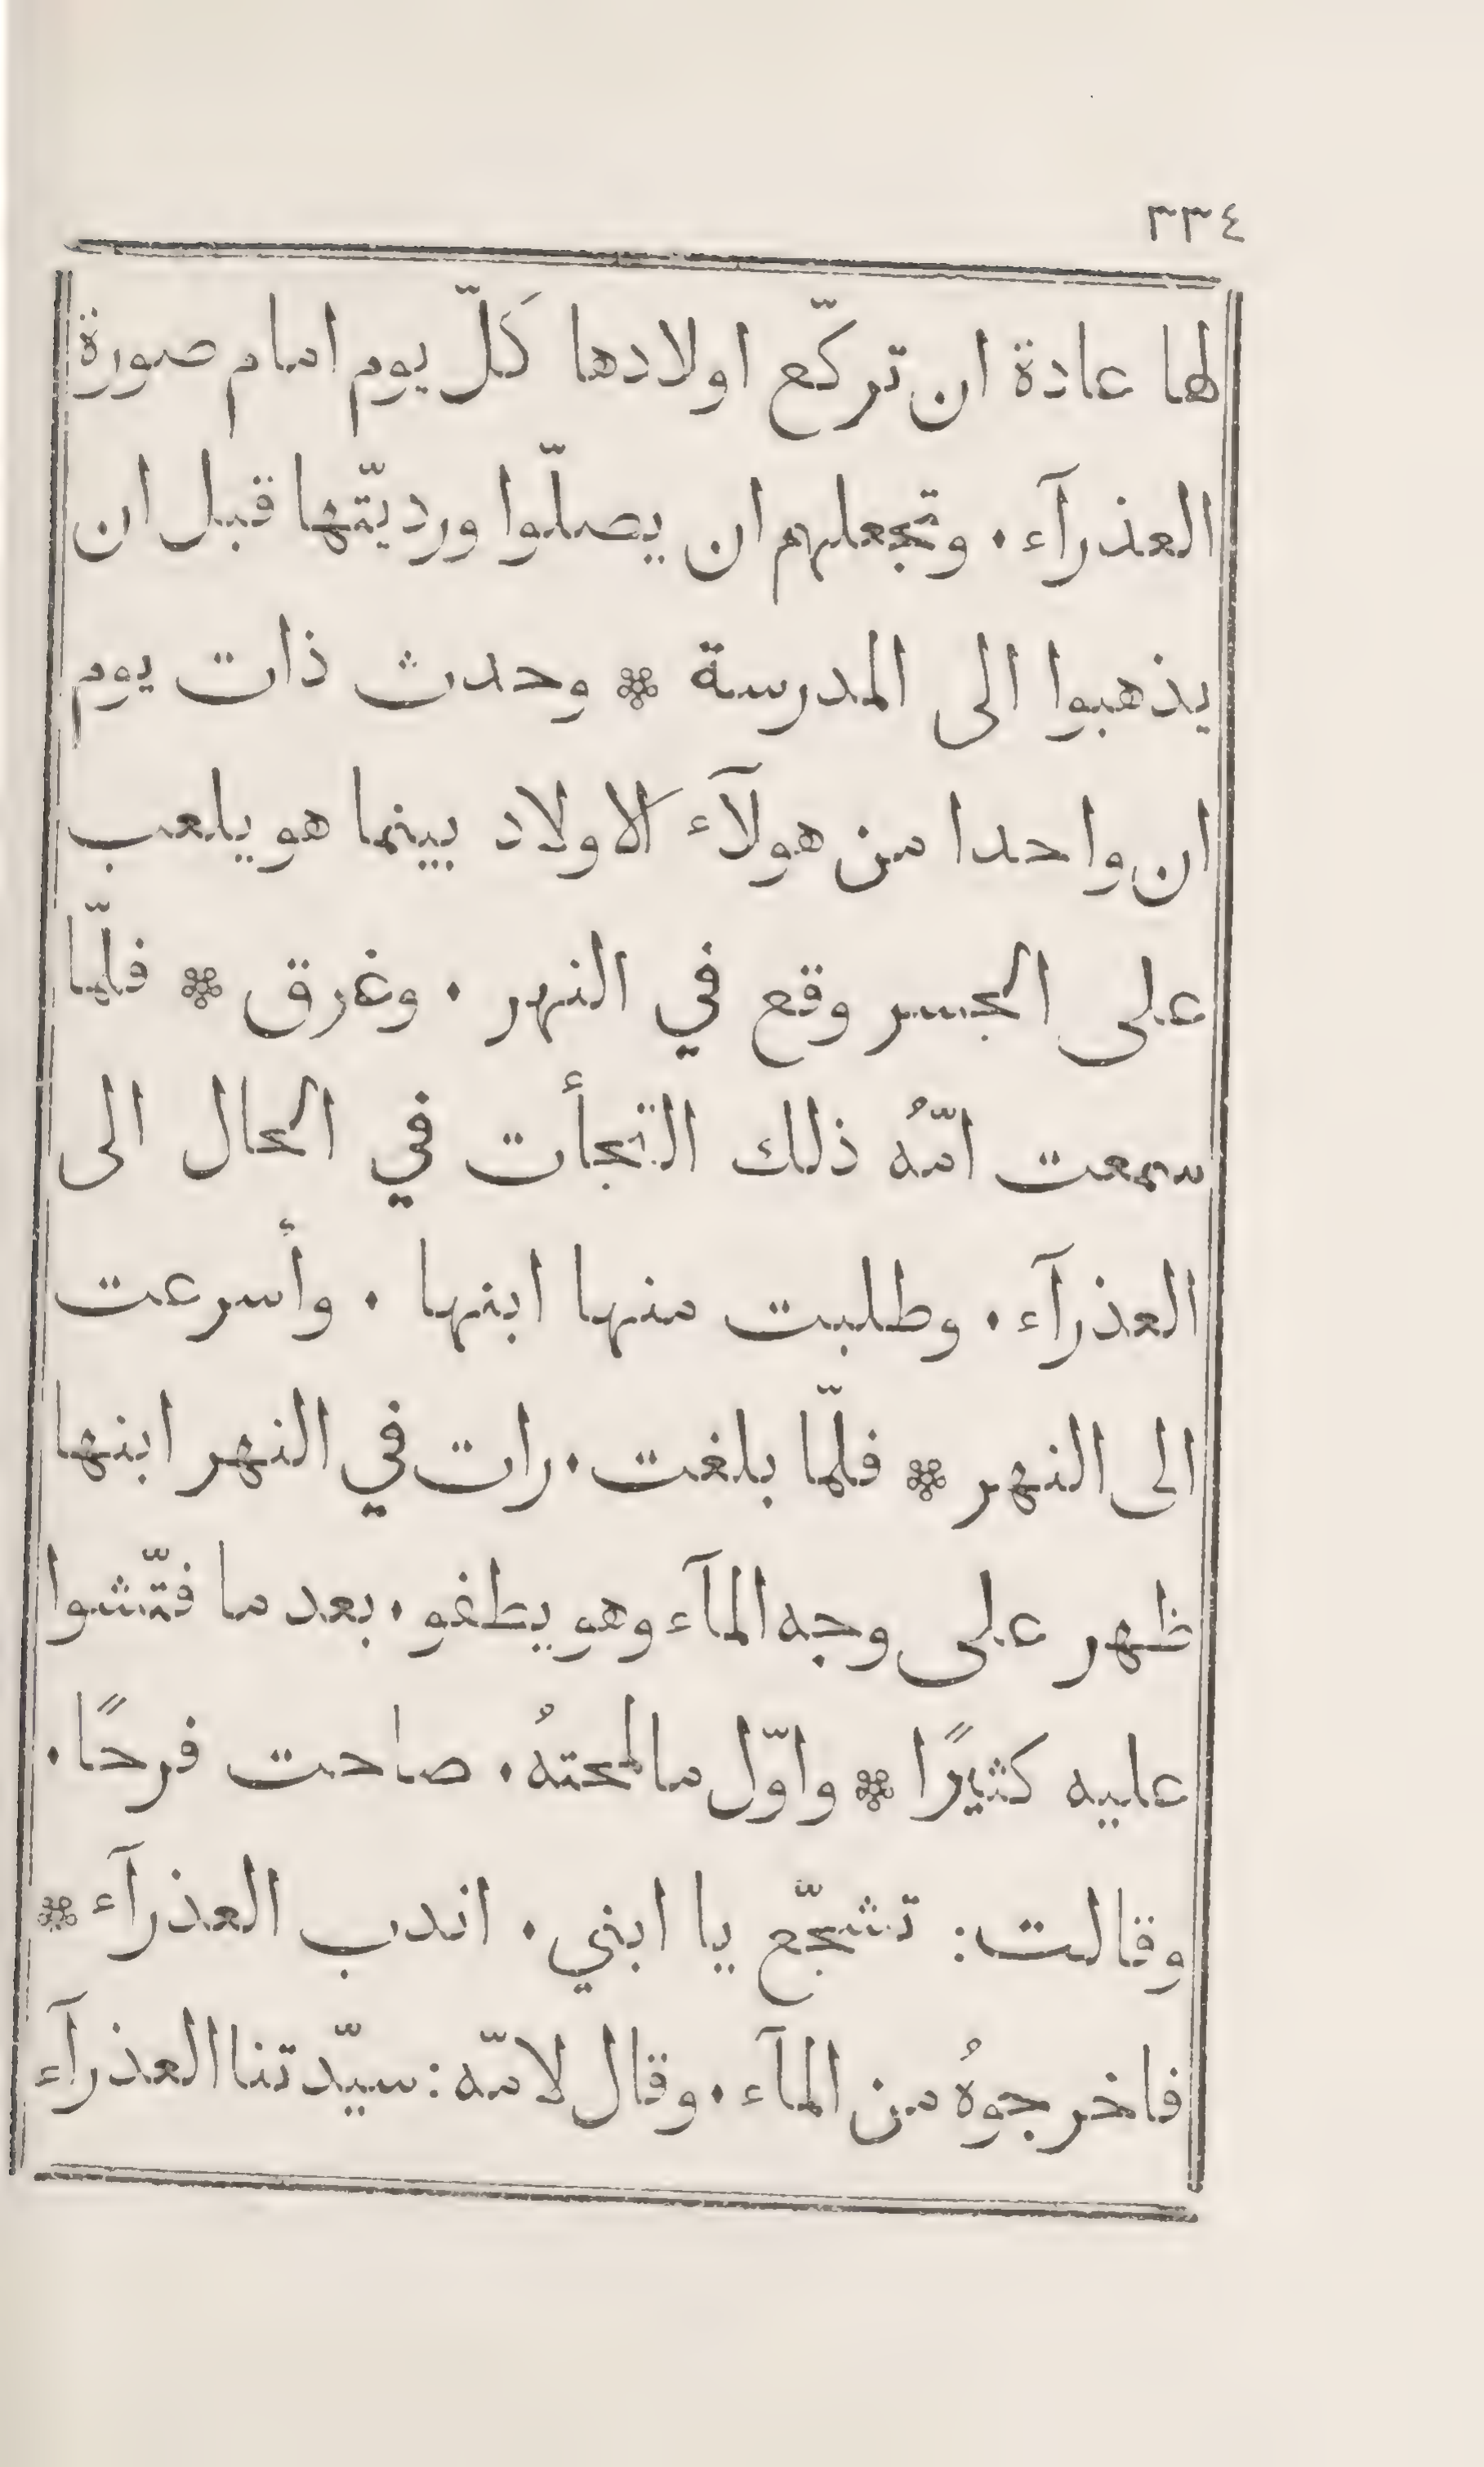 ٣٣٤
لها عادة ان تركّع اولادها كَلّ يوم امام صورة
العذرآء. وتجعلهم ان يصلّوا ورديّتها قبل ان
يذهبوا الى المدرسة ❊ وحدث ذات يوم
ان واحدا من هولآء الاولاد بينما هو يلعب
على الجسر وقع في النهر . وغرق ❊ فلمّا
سمعت امّهُ ذلك التجأت في الحال الى
العذرآء . وطلبت منها ابنها . وأسرعت
الى النهر ❊ فلمّا بلغت . رات في النهر ابنها
ظهر على وجه المآء وهو يطغو . بعد ما فتّشوا
عليه كثيرًا ❊ واوّل ما لمحتهُ . صاحت فرحًا .
وقالت : تشجّع يا ابني . اندب العذرآء ❊
فاخرجوهُ من المآء . وقال لامّه : سيّدتنا العذرآء